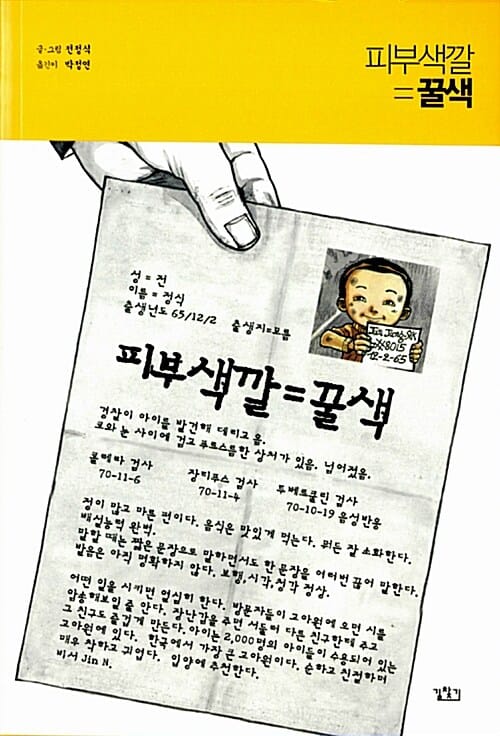 글·그림 전정식
옮긴이 박정연
피부색깔
=꿀색
성 = 전
이름 = 정식
출생년도 65/12/2 출생지=모름
Jun Jung Sik
8015
12-2-65
피부색깔=꿀색
경찰이 아이를 발견해 데리고 옴.
코와 눈 사이에 검고 푸르스름한 상처가 있음. 넘어졌음.
콜레라 검사
70-11-6
장티푸스 검사
70-11-4
투베르쿨린 검사
70-10-19 음성반응
정이 많고 마른 편이다. 음식은 맛있게 먹는다. 뭐든 잘 소화한다.
배설능력 완벽.
말할 때는 짧은 문장으로 말하면서도 한 문장을 여러번 끊어 말한다.
발음은 아직 정확하지 않다. 보행, 시각, 청각 정상.
어떤 일을 시키면 열심히 한다. 방문자들이 고아원에 오면 시를
암송해보일 줄 안다. 장난감을 주면 서둘러 다른 친구한테 주고
그 친구도 즐겁게 만든다. 아이는 2,000명의 아이들이 수용되어 있는
고아원에 있다. 한국에서 가장 큰 고아원이다. 순하고 친절하며
매우 착하고 귀엽다. 입양에 추천한다.
비서 Jin H.
길찾기